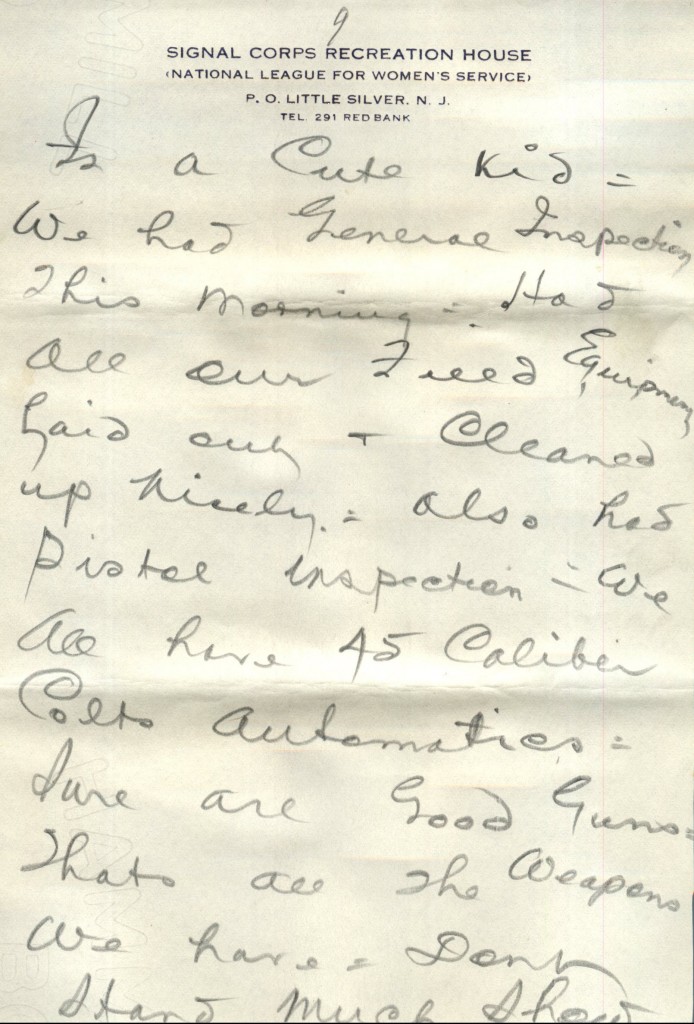 9
SIGNAL CORPS RECREATION HOUSE
(NATIONAL LEAGUE FOR WOMEN'S SERVICE)
P. O. LITTLE SILVER, N. J.
TEL. 291 RED BANK
Is a Cute Kid =
We had General Inspection
This Morning = Had
all our Field Equipment
Laid out + Cleaned
up Nicely. = also had
Pistol inspection = We
all have 45 Caliber
Colts Automatics =
Sure are Good Guns =
Thats all the Weapons
We have = Dont
Stand Much Show